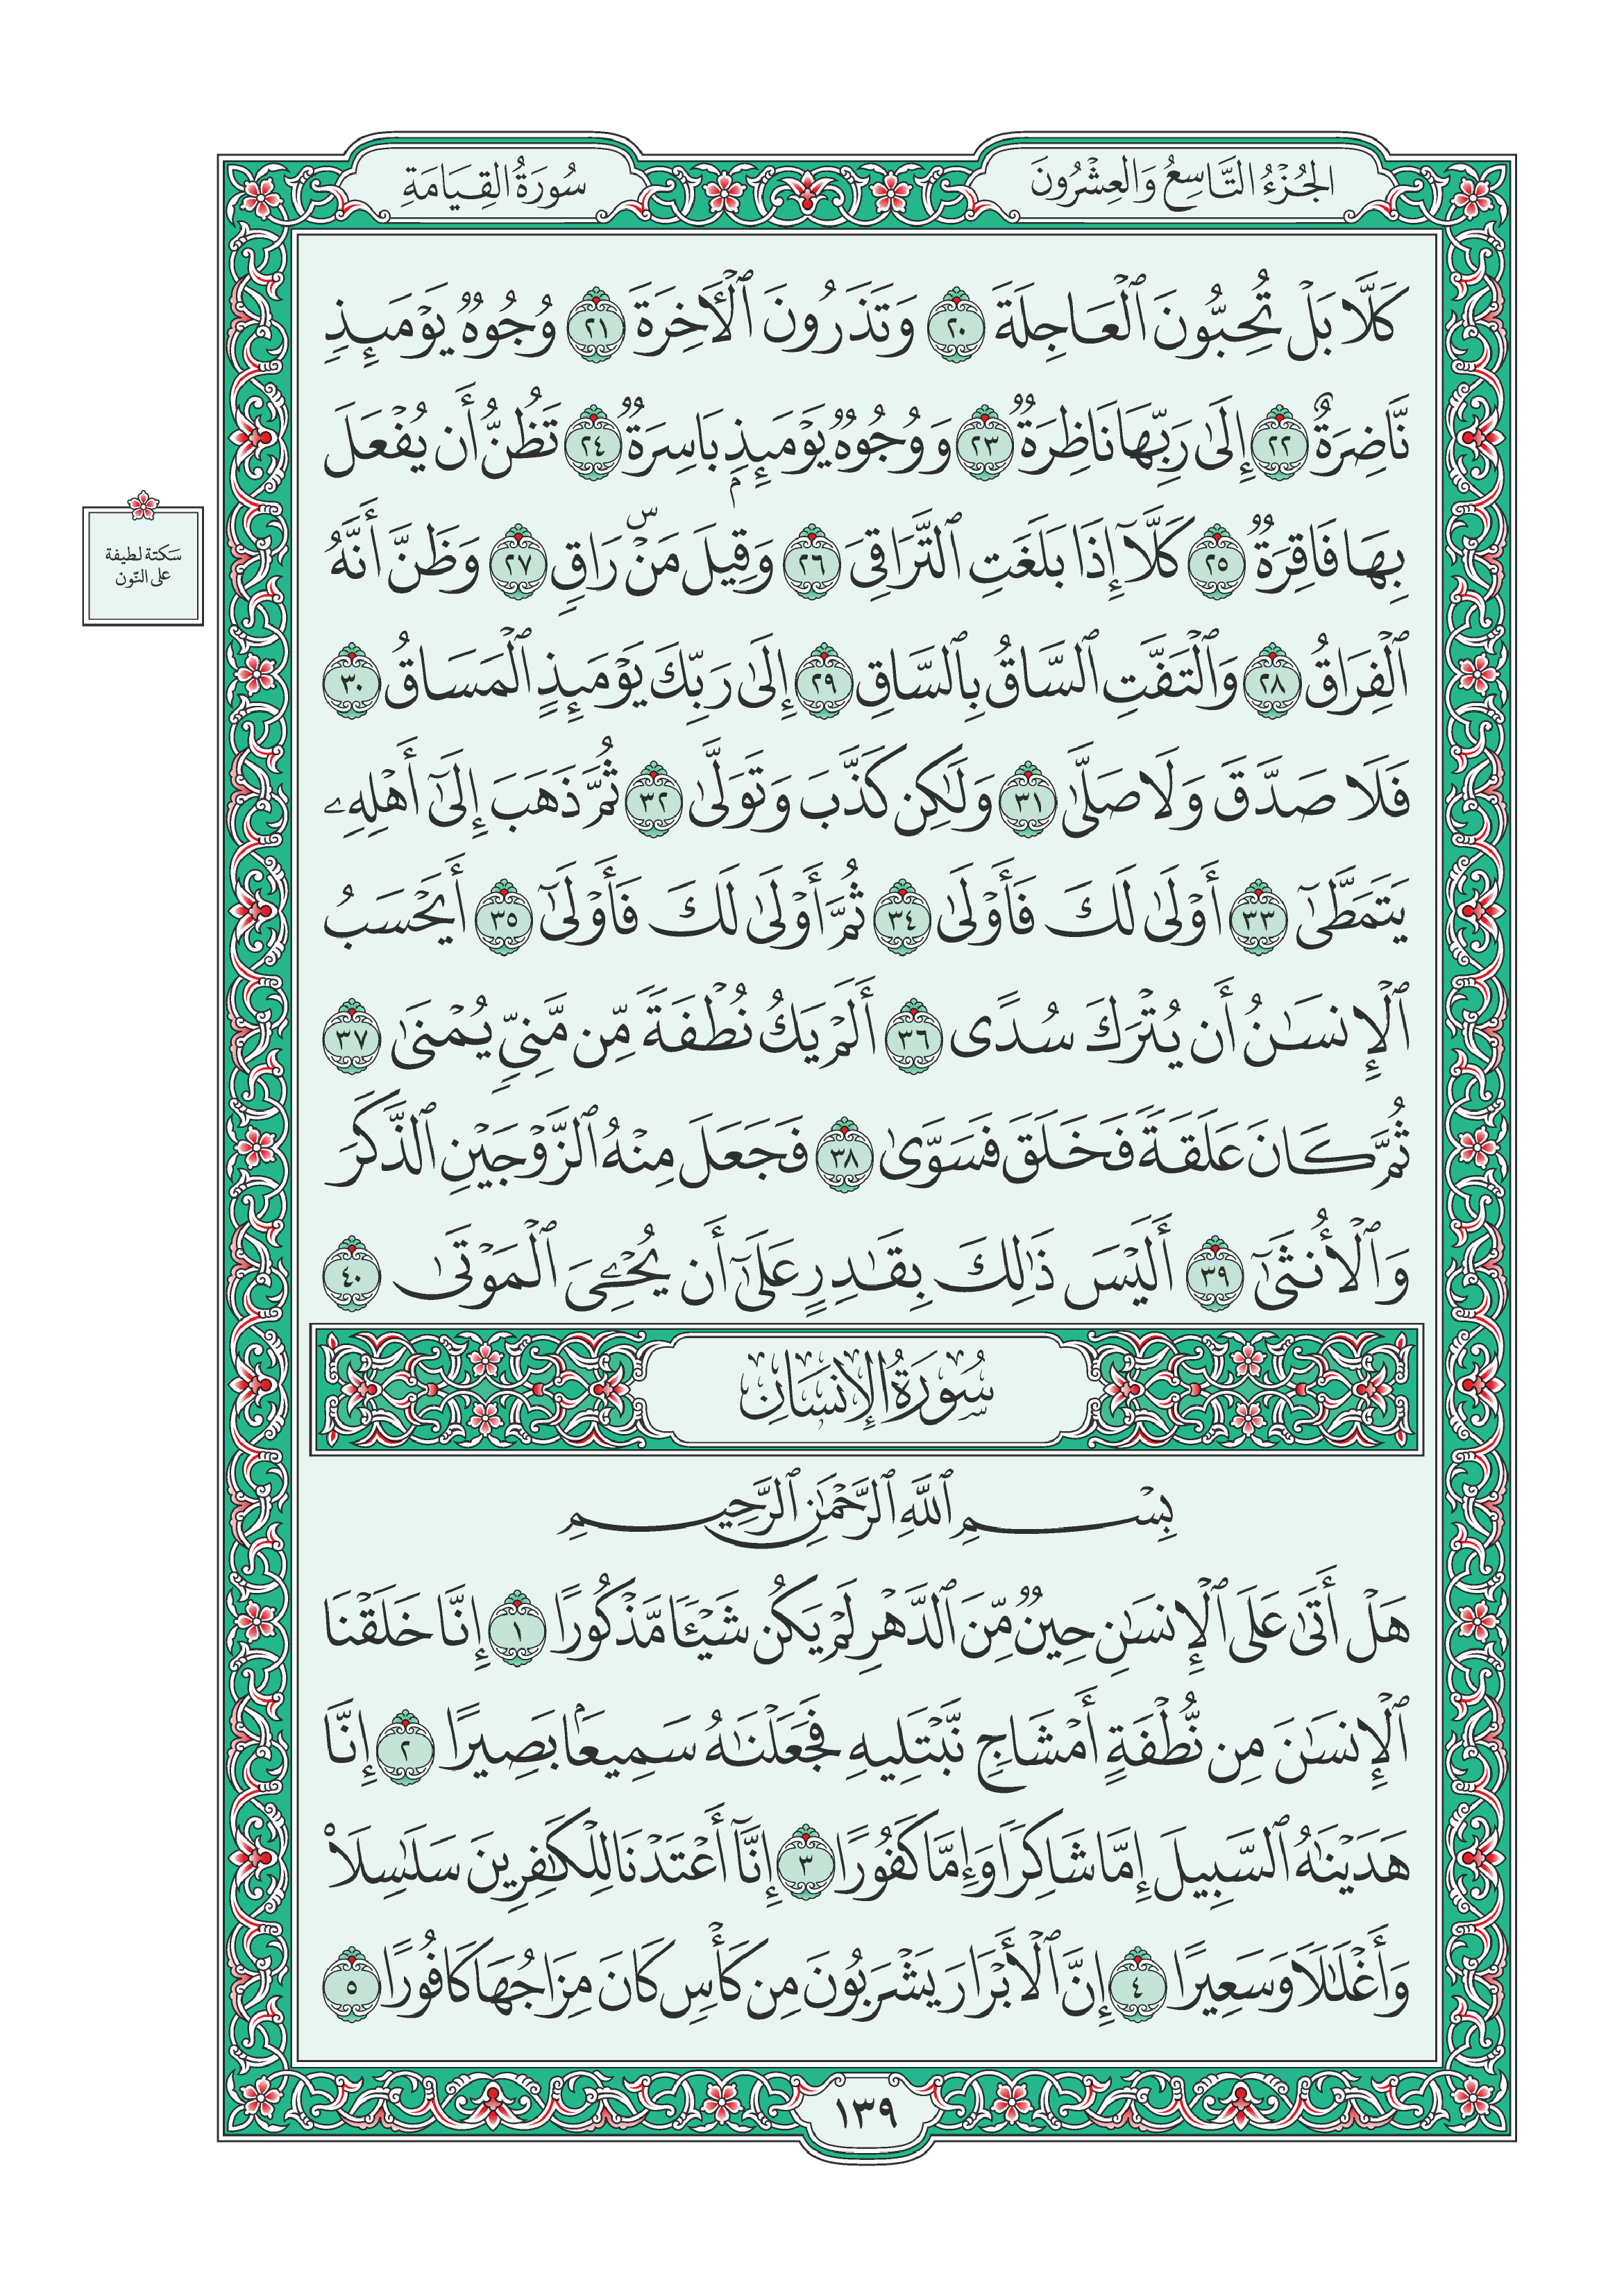 الجُزْءُ التَّاسِعُ وَالعِشْرُونَ
سُورَةُ القِيَامَةِ
كَلَّا بَلۡ تُحِبُّونَ ٱلۡعَاجِلَةَ ٢٠ وَتَذَرُونَ ٱلۡأٓخِرَةَ ٢١ وُجُوهٞ يَوۡمَئِذٖ
نَّاضِرَةٌ ٢٢ إِلَىٰ رَبِّهَا نَاظِرَةٞ ٢٣ وَوُجُوهٞ يَوۡمَئِذِۭ بَاسِرَةٞ ٢٤ تَظُنُّ أَن يُفۡعَلَ
بِهَا فَاقِرَةٞ ٢٥ كَلَّآ إِذَا بَلَغَتِ ٱلتَّرَاقِيَ ٢٦ وَقِيلَ مَنۡۜ رَاقٖ ٢٧ وَظَنَّ أَنَّهُ
ٱلۡفِرَاقُ ٢٨ وَٱلۡتَفَّتِ ٱلسَّاقُ بِٱلسَّاقِ ٢٩ إِلَىٰ رَبِّكَ يَوۡمَئِذٍ ٱلۡمَسَاقُ ٣٠
فَلَا صَدَّقَ وَلَا صَلَّىٰ ٣١ وَلَٰكِن كَذَّبَ وَتَوَلَّىٰ ٣٢ ثُمَّ ذَهَبَ إِلَىٰٓ أَهۡلِهِۦ
يَتَمَطَّىٰٓ ٣٣ أَوۡلَىٰ لَكَ فَأَوۡلَىٰ ٣٤ ثُمَّ أَوۡلَىٰ لَكَ فَأَوۡلَىٰٓ ٣٥ أَيَحۡسَبُ
ٱلۡإِنسَٰنُ أَن يُتۡرَكَ سُدًى ٣٦ أَلَمۡ يَكُ نُطۡفَةٗ مِّن مَّنِيّٖ يُمۡنَىٰ ٣٧
ثُمَّ كَانَ عَلَقَةٗ فَخَلَقَ فَسَوَّىٰ ٣٨ فَجَعَلَ مِنۡهُ ٱلزَّوۡجَيۡنِ ٱلذَّكَرَ
وَٱلۡأُنثَىٰٓ ٣٩ أَلَيۡسَ ذَٰلِكَ بِقَٰدِرٍ عَلَىٰٓ أَن يُحۡـِۧيَ ٱلۡمَوۡتَىٰ ٤٠
سُورَةُ الإِنسَانِ
بِسۡمِ ٱللَّهِ ٱلرَّحۡمَٰنِ ٱلرَّحِيمِ
هَلۡ أَتَىٰ عَلَى ٱلۡإِنسَٰنِ حِينٞ مِّنَ ٱلدَّهۡرِ لَمۡ يَكُن شَيۡـٔٗا مَّذۡكُورًا ١ إِنَّا خَلَقۡنَا
ٱلۡإِنسَٰنَ مِن نُّطۡفَةٍ أَمۡشَاجٖ نَّبۡتَلِيهِ فَجَعَلۡنَٰهُ سَمِيعَۢا بَصِيرًا ٢ إِنَّا
هَدَيۡنَٰهُ ٱلسَّبِيلَ إِمَّا شَاكِرٗا وَإِمَّا كَفُورًا ٣ إِنَّآ أَعۡتَدۡنَا لِلۡكَٰفِرِينَ سَلَٰسِلَاْ
وَأَغۡلَٰلٗا وَسَعِيرًا ٤ إِنَّ ٱلۡأَبۡرَارَ يَشۡرَبُونَ مِن كَأۡسٖ كَانَ مِزَاجُهَا كَافُورًا ٥
سَكتة لطيفة
على النّون
١٣٩